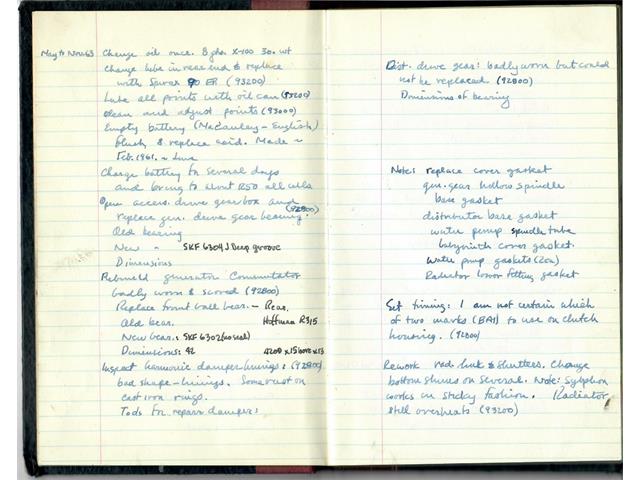 May to Nov 63 Change oil once. 8 pts. X-100 30. wt
Change lube in rear end & replace
with Spirax 90 EP (93200)
Lube all points with oil can (93200)
Clean and adjust points (93000)
Empty battery (MacCauley - English)
flush & replace acid. Made ~
Feb. 1961. ~
Charge battery for several days
and bring to about 1250 all cells
Open access. drive gearbox and (92800)
replace gen. drive gear bearing.
Old bearing
New " SKF 6304J Deep groove
Dimensions
Rebuild generator Commutator
badly worn & scored (92800)
Replace front ball bear. - Rear.
Old bear. Hoffman R315
New bear.: SKF 6302 (no seal)
Dimensions: 42 42OD x 15 bore x 13
Inspect harmonic damper linings: (92800)
bad shape - linings. Some rust on
cast iron rings.
Tools for repair damper:
Dist. drive gear: badly worn but could
not be replaced (92800)
Dimensions of bearing
Note: replace cover gasket
gen. gear hollow spindle
base gasket
distributor base gasket
water pump spindle tube
labyrinth cover gasket
water pump gaskets (2ea)
Radiator lower fitting gasket
Set timing: I am not certain which
of two marks (BA1) to use on clutch
housing. (92800)
Rework rad. link & shutters. Change
bottom shims on several. Note: Sylphon
works in sticky fashion. Radiator
still overheats (93200)